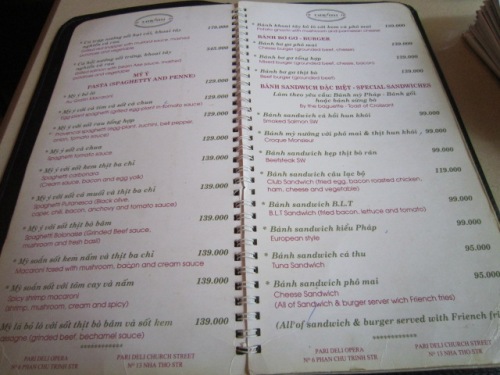 nghiền và rau
179.000
nghiền và rau
MỲ Ý
PASTA (SPAGHETTY AND PENNE)
Mỳ ý bỏ lò 129.000
129.000
Mỳ ý với cà tím cà sốt cà chua
Eggplant spaghetti (grilled eggplant in tomato sauce)
Mỳ ý với sốt rau tổng hợp 129.000
Mỳ ý sốt cà chua 129.000
Spaghetti tomato sauce
Mỳ ý sốt kem thịt ba chỉ 139.000
Spaghetti carbonara
(Cream sauce, bacon and egg yolk)
Mỳ ý với sốt cá muối cà thịt ba chỉ 139.000
Spaghetti Puttanesca (Black olive,
caper, chili, bacon, anchovy and tomato sauce)
Mỳ ý với sốt thịt bò băm 139.000
Spaghetti Bolonaise (Grinded Beef sauce,
mushroom and fresh basil)
Mỳ soắn sốt kem nấm và thịt ba chỉ 139.000
Macaroni tossed with mushroom, bacon and cream sauce
Mỳ soắn sốt với tôm cay và nấm 139.000
Spicy shrimp macaroni
(shrimp, mushroom, cream and spicy)
Mỳ lá bỏ lò sốt thịt bò băm và sốt kem 139.000
Lasagne (grinded beef, bechamel sauce)
PARI DELI OPERA
Nº 6 PHAN CHU TRINH STR
PARI DELI CHURCH STREET
Nº 13 NHA THO STR
Bánh khoai tây bỏ lò sốt kem và phó mai 139.000
BÁNH BƠ GƠ - BURGER
Bánh bơ gơ phó mai 129.000
Cheese burger (grounded beef, cheese)
Bánh bơ gơ tổng hợp 139.000
Mixed burger (grounded beef, cheese, bacon)
Bánh bơ gơ thịt bò 119.000
Beef burger (grounded beef)
BÁNH SANDWICH ĐẶC BIỆT - SPECIAL SANDWICHES
Làm theo yêu cầu: Bánh mỳ Pháp - Bánh gối
hoặc bánh sừng bò
By the baguette - Toast of Croisant
Bánh sandwich cá hồi hun khói 99.000
Smoked Salmon SW
Bánh mỳ nướng với phó mai & thịt hun khói 99.000
Croque Monsieur
Bánh sandwich kẹp thịt bò rán 99.000
Beefsteak SW
Bánh sandwich câu lạc bộ 119.000
Club Sandwich (fried egg, bacon roasted chicken,
ham, cheese and vegetable)
Bánh sandwich B.L.T 99.000
B.L.T Sandwich (fried bacon, lettuce and tomato)
Bánh sandwich kiểu Pháp 99.000
European style
Bánh sandwich cá thu 95.000
Tuna Sandwich
Bánh sandwich phó mai 95.000
Cheese Sandwich
(All of Sandwich & burger serve with Friench fries)
(All of sandwich & burger served with Friench fri
PARI DELI OPERA
Nº 6 PHAN CHU TRINH STR
PARI DELI CHURCH STREET
Nº 13 NHA THO STR